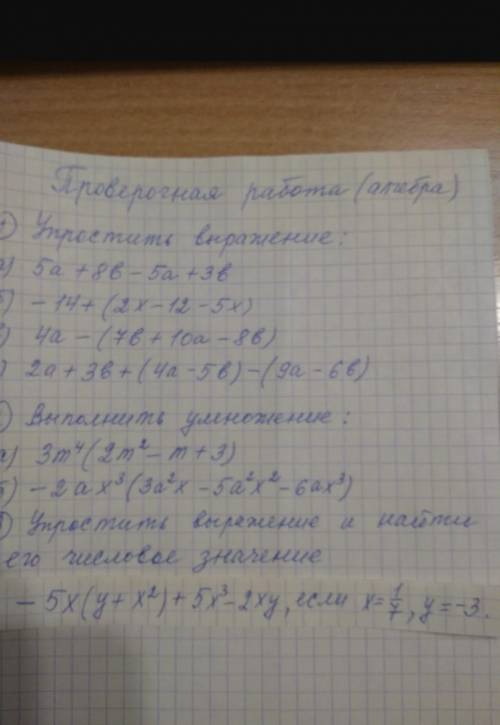 Проверочная работа (алгебра)
1) Упростить выражение:
а) 5а + 8в - 5а + 3в
б) - 14 + (2х - 12 - 5х)
в) 4а - (7в + 10а - 8в)
2а + 3в + (4а - 5в) - (9а - 6в)
Выполнить умножение:
а) 3m⁴(2m² - m + 3)
б) - 2ах³(3а²х - 5а²х² - 6ах³)
Упростить выражение и найти
его числовое значение
- 5х(у + х²) + 5х³ - 2ху, если х = 1/7, у = -3.